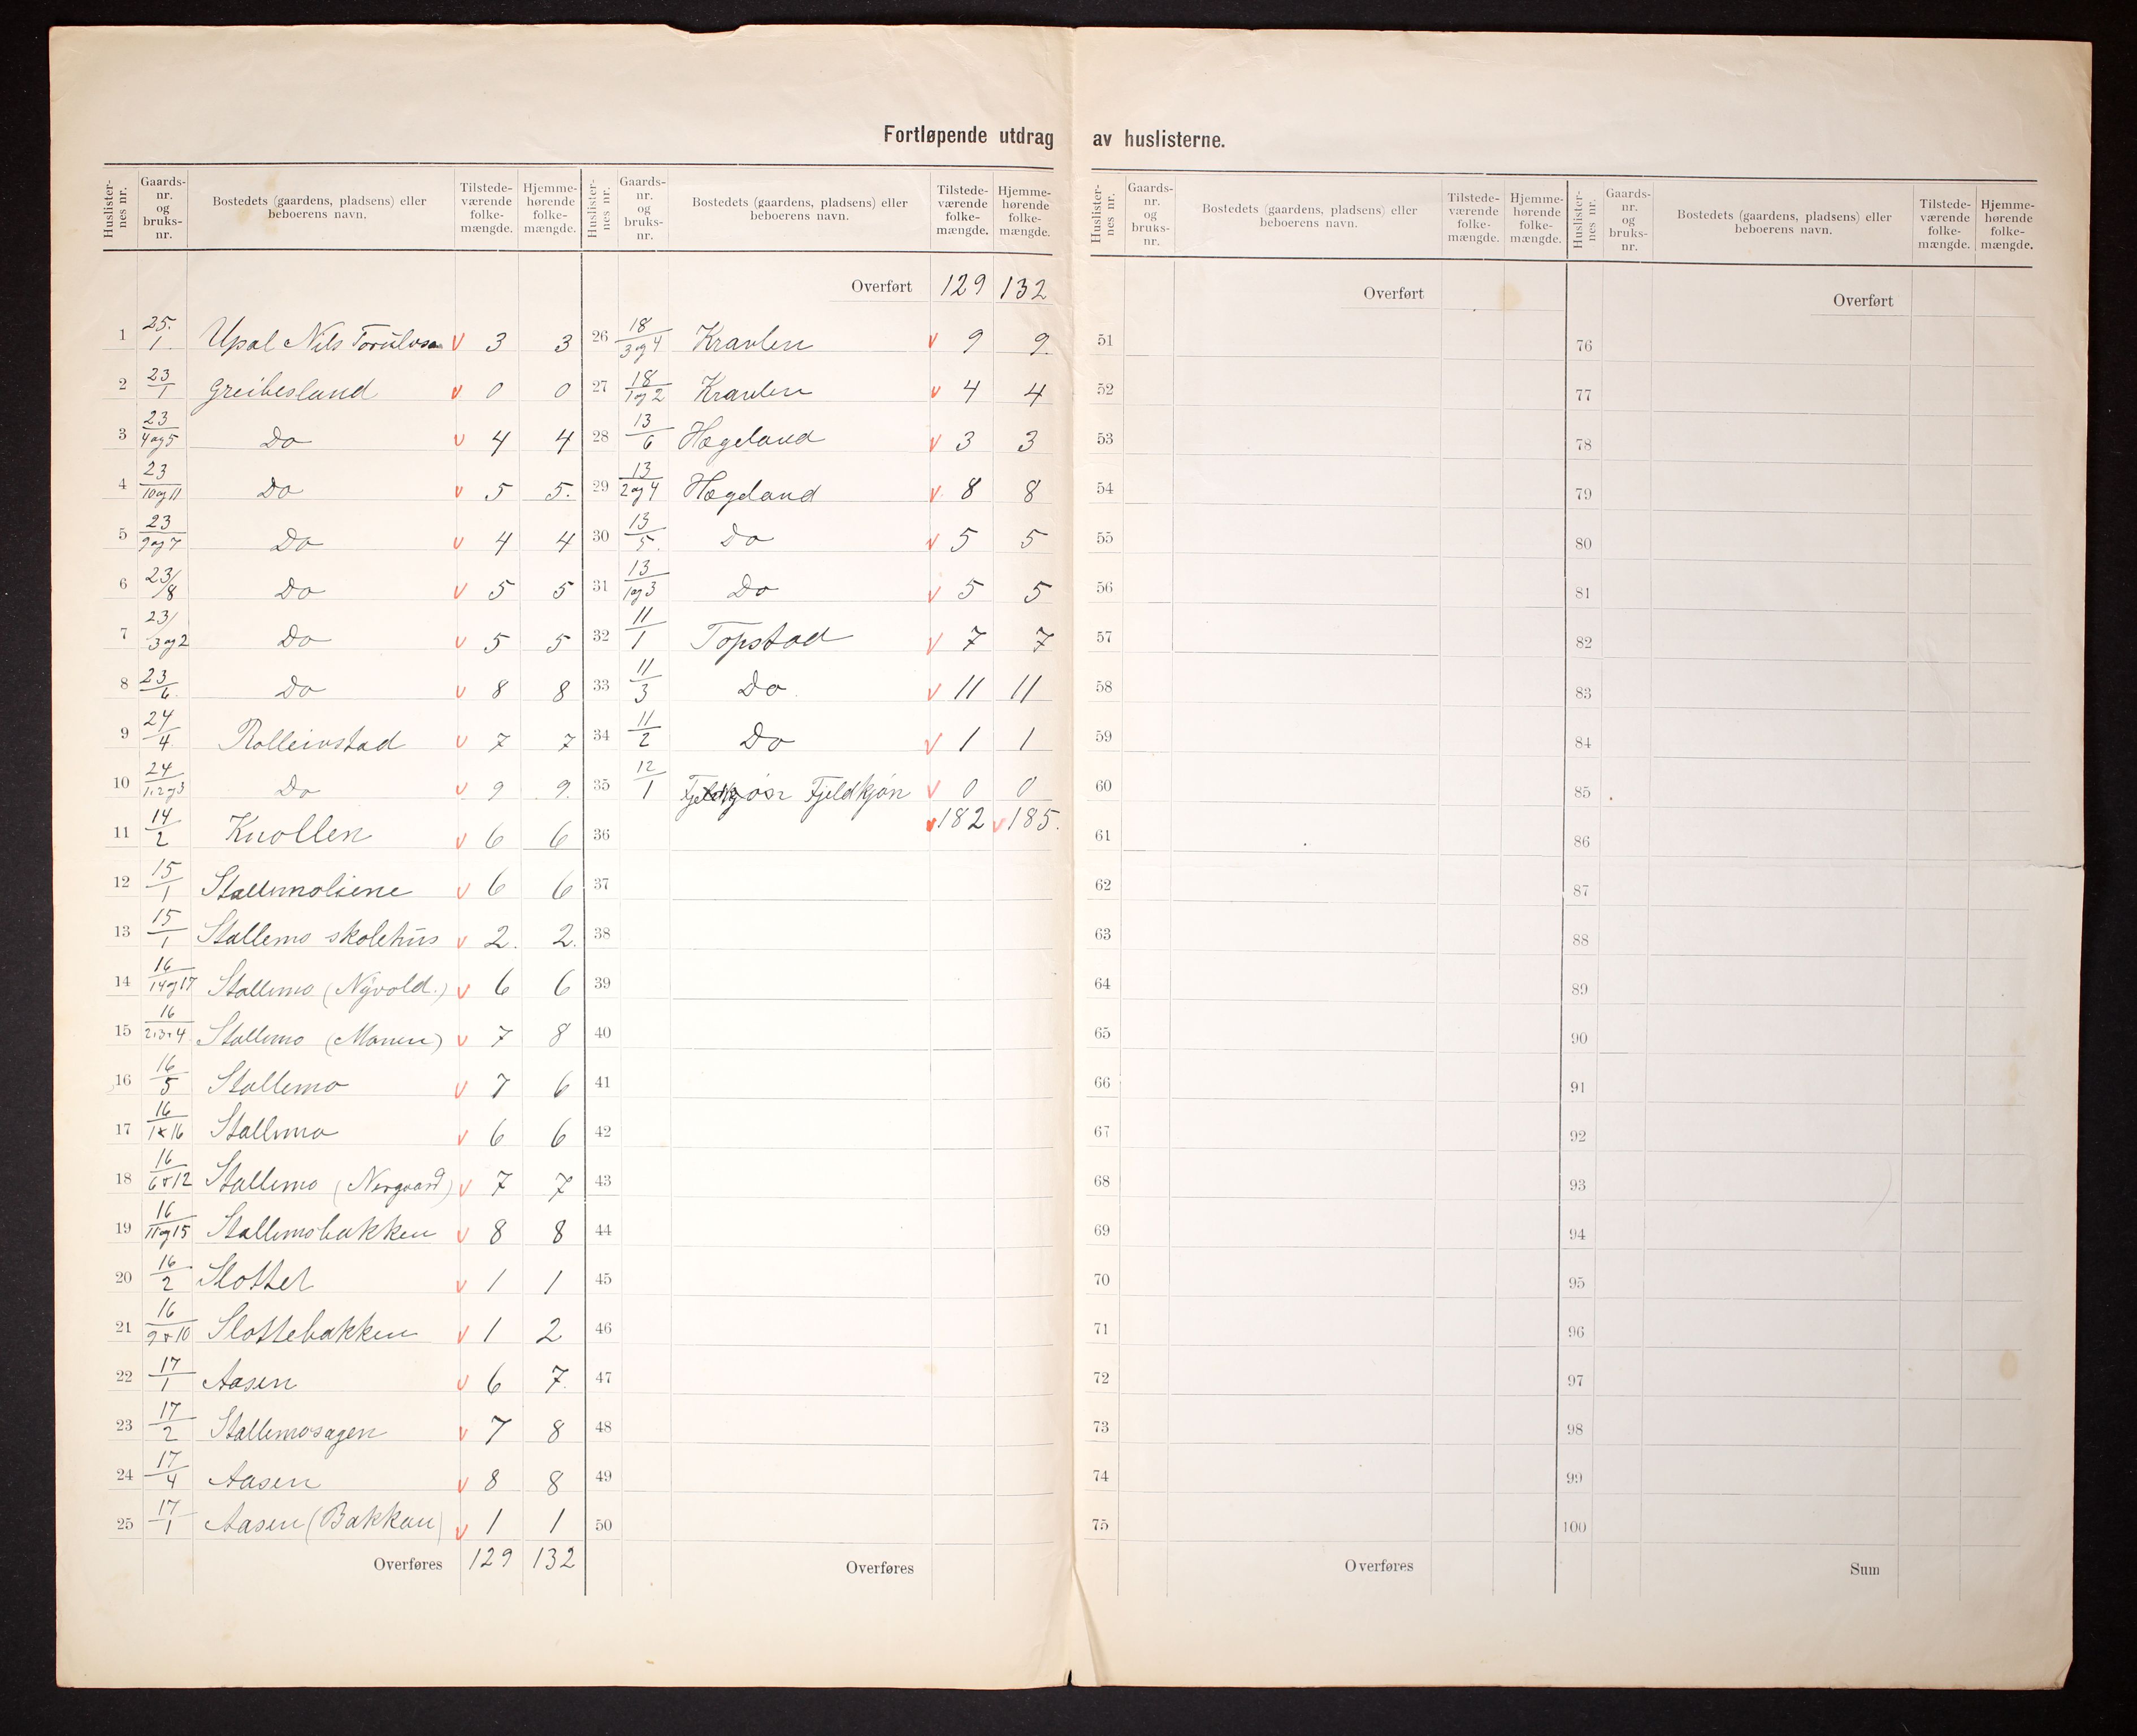 Fortløpende utdrag av huslisterne.
Huslister-nes nr. Gaards-nr. og bruks-nr. Bostedets (gaardens, pladsens) eller beboerens navn. Tilstede-værende folke-mængde. Hjemme-hørende folke-mængde. Huslister-nes nr. Gaards-nr. og bruks-nr. Bostedets (gaardens, pladsens) eller beboerens navn. Tilstede-værende folke-mængde. Hjemme-hørende folke-mængde.
1 25/1 Upsal Nils v 3 3
2 23/1 Greibesland v 0 0
3 23/4og5 Do v 4 4
4 23/10og11 Do v 5 5.
5 23/9og7 Do v 4 4
6 23/8 Do v 5 5
7 23/3og2 Do v 5 5
8 23/6 Do v 8 8
9 24/4 Rolleivstad v 7 7
10 24/1,2og3 Do v 9 9.
11 14/2 Knollen v 6 6
12 15/1 Stallemoliene v 6 6
13 15/1 Stallemo skolehus v 2. 2.
14 16/14og17 Stallemo (Nyvold.) v 6 6
15 16/2+3+4 Stallemo (Monen) v 7 8
16 16/5 Stallemo v 7 6
17 16/1+16 Stallemo v 6 6
18 16/6+12 Stallemo (Nergaard) v 7 7
19 16/11og15 Stallemobakken v 8 8
20 16/2 Slottet v 1 1
21 16/9+10 Slottebakken v 1 2
22 17/1 Aasen v 6 7.
23 17/2 Stallemosagen v 7 8
24 17/4 Aasen v 8 8
25 17/1 Aasen (Bakkan) v 1 1
Overføres 129 132
Overført 129 132
26 18/3og4 Kravlen v 9 9.
27 18/1og2 Kravlen v 4 4
28 13/6 Hægeland v 3 3
29 13/2og4 Hægeland v 8 8
30 13/5. Do v 5 5
31 13/1og3 Do v 5 5
32 11/1 Topstad v 7 7
33 11/3 Do v 11 11
34 11/2 Do v 1 1
35 12/1 Fjeldkjøn Fjeldkjøn v 0 0
36 v 182 v 185.
37
38
39
40
41
42
43
44
45
46
47
48
49
50
Overføres
Huslister-nes nr. Gaards-nr. og bruks-nr. Bostedets (gaardens, pladsens) eller beboerens navn. Tilstede-værende folke-mængde. Hjemme-hørende folke-mængde. Huslister-nes nr. Gaards-nr. og bruks-nr. Bostedets (gaardens, pladsens) eller beboerens navn. Tilstede-værende folke-mængde. Hjemme-hørende folke-mængde.
Overført
51
52
53
54
55
56
57
58
59
60
61
62
63
64
65
66
67
68
69
70
71
72
73
74
75
Overføres
Overført
76
77
78
79
80
81
82
83
84
85
86
87
88
89
90
91
92
93
94
95
96
97
98
99
100
Sum